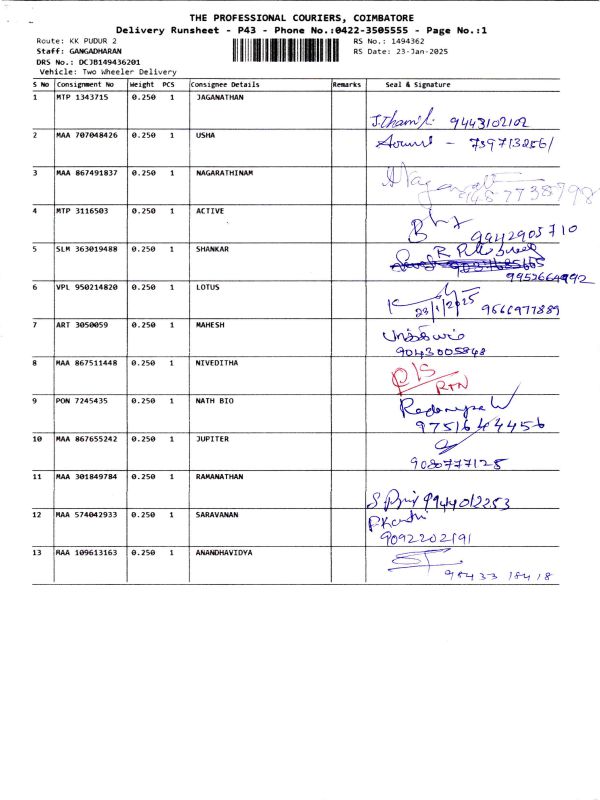 THE PROFESSIONAL COURIERS, COIMBATORE
Delivery Runsheet - P43 - Phone No.:0422-3505555 - Page No.:1
Route: KK PUDUR 2 RS No.: 1494362
Staff: GANGADHARAN RS Date: 23-Jan-2025
DRS No.: DCJB149436201
Vehicle: Two Wheeler Delivery
S No Consignment No Weight PCS Consignee Details Remarks Seal & Signature
1 MTP 1343715 0.250 1 JAGANATHAN
J.Thamil 9443102102
2 MAA 707048426 0.250 1 USHA
3 MAA 867491837 0.250 1 NAGARATHINAM
4 MTP 3116503 0.250 1 ACTIVE
9942905710
5 SLM 363019488 0.250 1 SHANKAR
9952664992
6 VPL 950214820 0.250 1 LOTUS
23/1/2025 9566977889
7 ART 3050059 0.250 1 MAHESH
9043005848
8 MAA 867511448 0.250 1 NIVEDITHA
RTN
9 PON 7245435 0.250 1 NATH BIO
9751644456
10 MAA 867655242 0.250 1 JUPITER
9080777125
11 MAA 301849784 0.250 1 RAMANATHAN
9944012253
12 MAA 574042933 0.250 1 SARAVANAN
9092202191
13 MAA 109613163 0.250 1 ANANDHAVIDYA
98433 18418